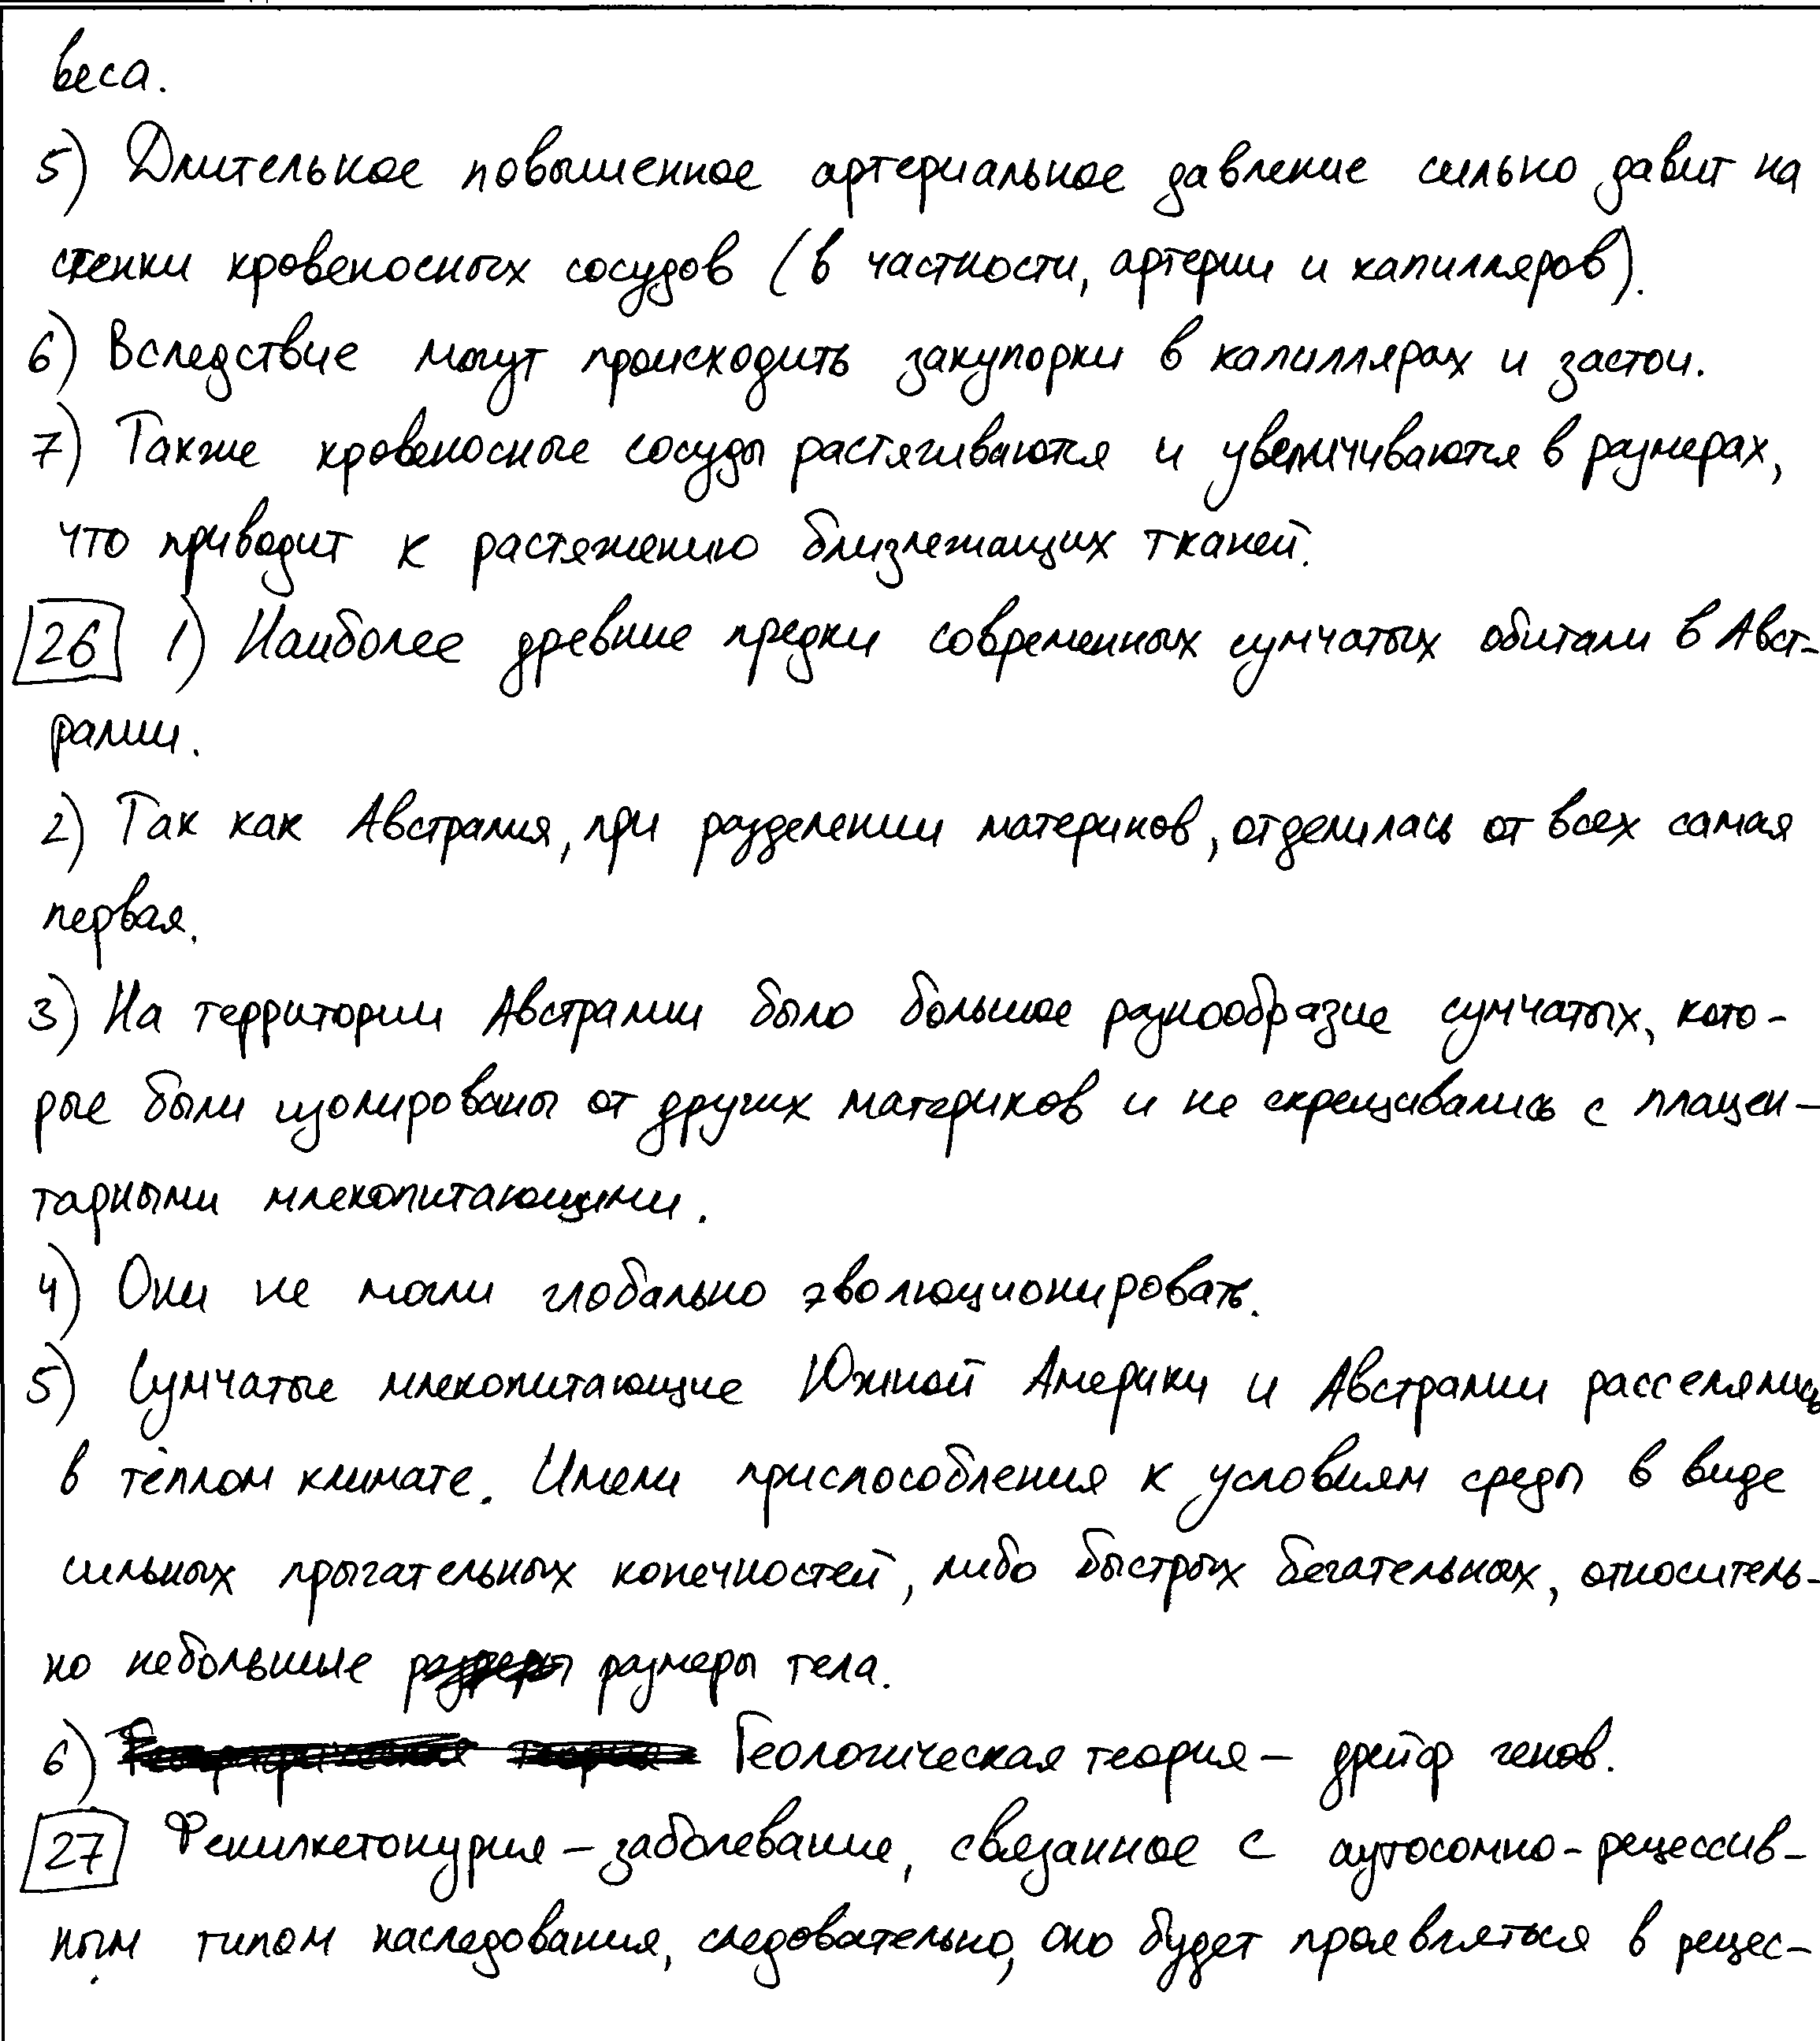 веса.
5) Длительное повышенное артериальное давление сильно давит на
стенки кровеносных сосудов (в частности, артерии и капилляров).
6) Вследствие могут происходить закупорки в капиллярах и застои.
7) Также кровеносные сосуды растягиваются и увеличиваются в размерах,
что приводит к растяжению близлежащих тканей.
26 1) Наиболее древние предки современных сумчатых обитали в Авст-
ралии.
2) Так как Австралия, при разделении материков, отделилась от всех самая
первая.
3) На территории Австралии было большое разнообразие сумчатых, кото-
рые были изолированы от других материков и не скрещивались с плацен-
тарными млекопитающими.
4) Они не могли глобально эволюционировать.
5) Сумчатые млекопитающие Южной Америки и Австралии расселялись
в тёплом климате. Имели приспособления к условиям среды в виде
сильных прыгательных конечностей, либо быстрых бегательных, относитель-
но небольшие размеры тела.
6) Геологическая теория – дрейф генов.
27 Фенилкетонурия – заболевание, связанное с аутосомно-рецессив-
ным типом наследования, следовательно, оно будет проявляться в рецес-